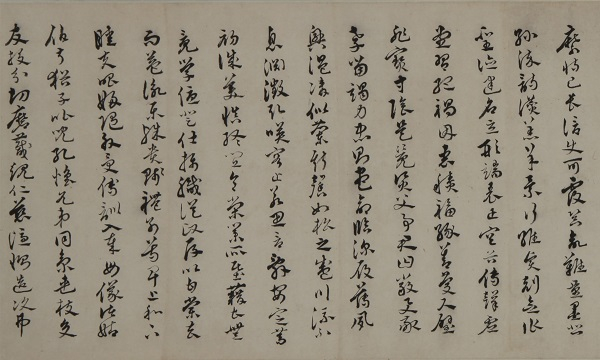 靡恃己長信使可覆器欲難量墨悲
絲染詩讚羔羊景行維賢剋念作
聖德建名立形端表正空谷傳聲虛
堂習聽禍因惡積福緣善慶尺璧
非寶寸陰是競資父事君曰嚴與敬
孝當竭力忠則盡命臨深履薄夙
興溫凊似蘭斯馨如松之盛川流不
息淵澄取映容止若思言辭安定篤
初誠美慎終宜令榮業所基籍甚無
竟學優登仕攝職從政存以甘棠去
而益詠樂殊貴賤禮別尊卑上和下
睦夫唱婦隨外受傅訓入奉母儀諸姑
伯叔猶子比兒孔懷兄弟同氣連枝交
友投分切磨箴規仁慈隱惻造次弗